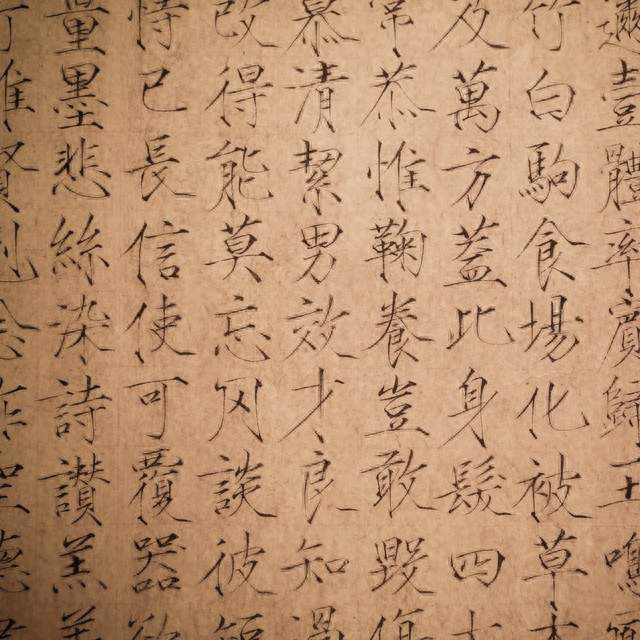 邇壹體率賓歸王鳴
竹白駒食場化被草木
及萬方蓋此身髮四大
常恭惟鞠養豈敢毀傷
慕清絜男效才良知過
改得能莫忘罔談彼短
恃己長信使可覆器欲
量墨悲絲染詩讚羔羊